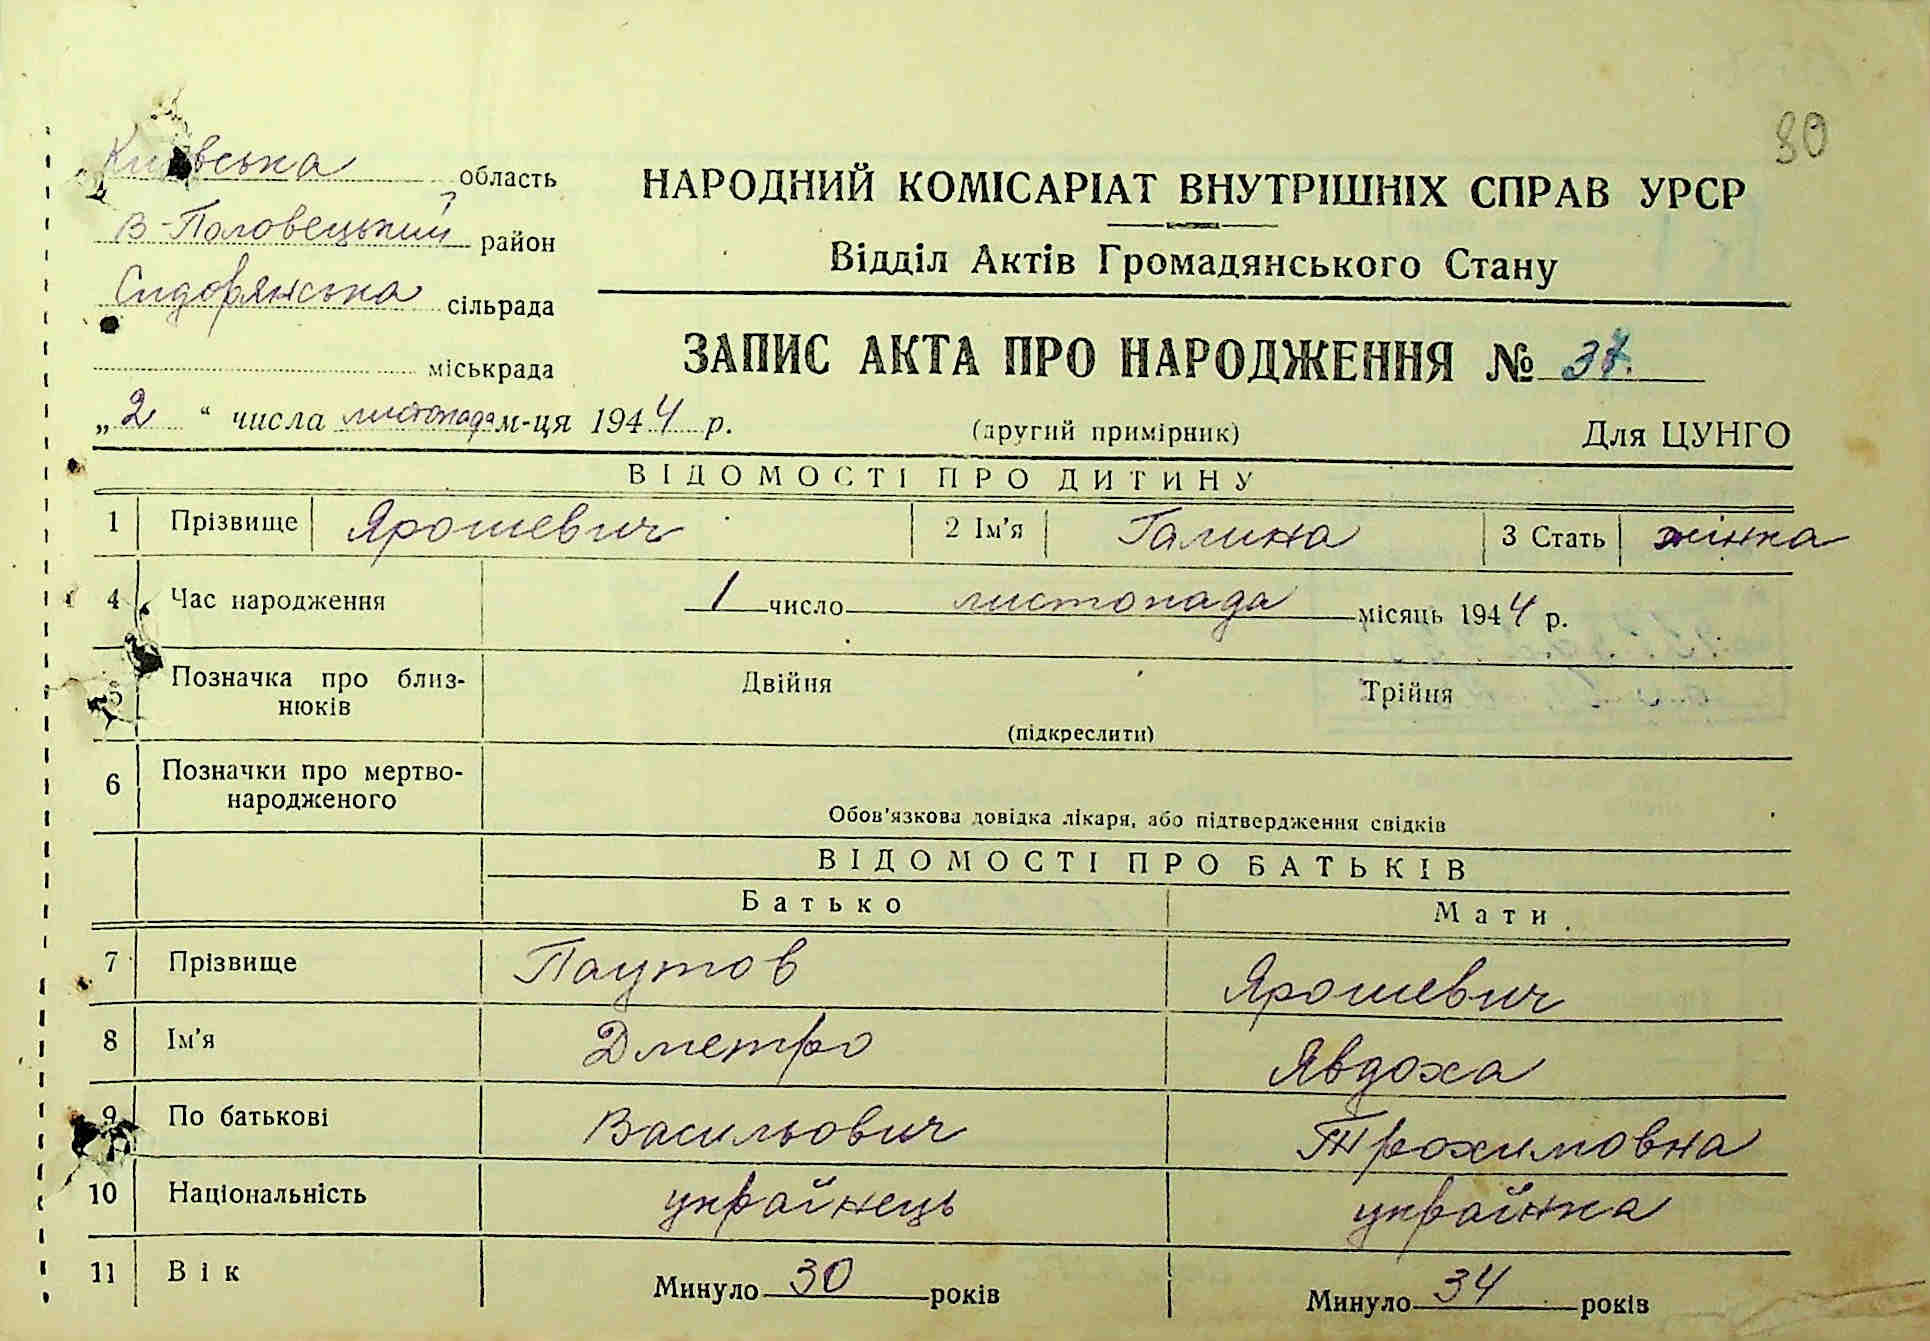 80
Київська область
В-Половецький район
Сидорянська сільрада
міськрада
НАРОДНИЙ КОМІСАРІАТ ВНУТРІШНІХ СПРАВ УРСР
Відділ Актів Громадянського Стану
ЗАПИС АКТА ПРО НАРОДЖЕННЯ № 37.
„2“ числа листопада м-ця 1944 р.
(другий примірник)
Для ЦУНГО
ВІДОМОСТІ ПРО ДИТИНУ
1 Прізвище Ярошевич 2 Ім'я Галина 3 Стать жінка
4 Час народження 1 число листопада місяць 1944 р.
5 Позначка про близнюків Двійня Трійня
(підкреслити)
6 Позначки про мертвонародженого
Обов'язкова довідка лікаря, або підтвердження свідків
ВІДОМОСТІ ПРО БАТЬКІВ
Батько Мати
7 Прізвище Паутов Ярошевич
8 Ім'я Дметро Явдоха
9 По батькові Васильович Трохимовна
10 Національність українець українка
11 Вік Минуло 30 років Минуло 34 років